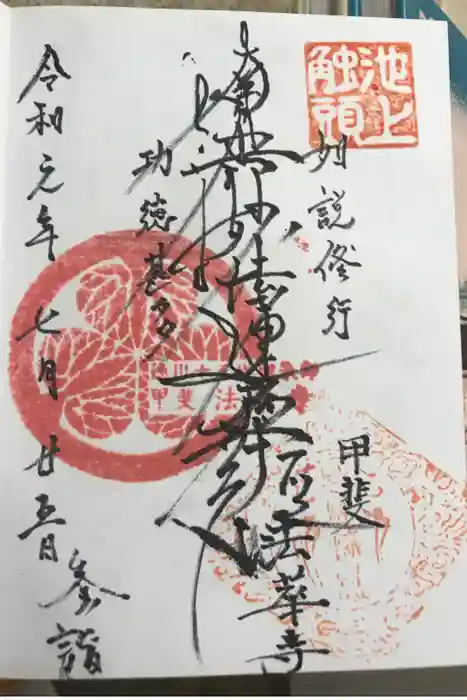 池上
触頭
如説修行
南無妙法蓮華経
功徳甚多
甲斐
法華寺
令和元年七月廿五日
参詣